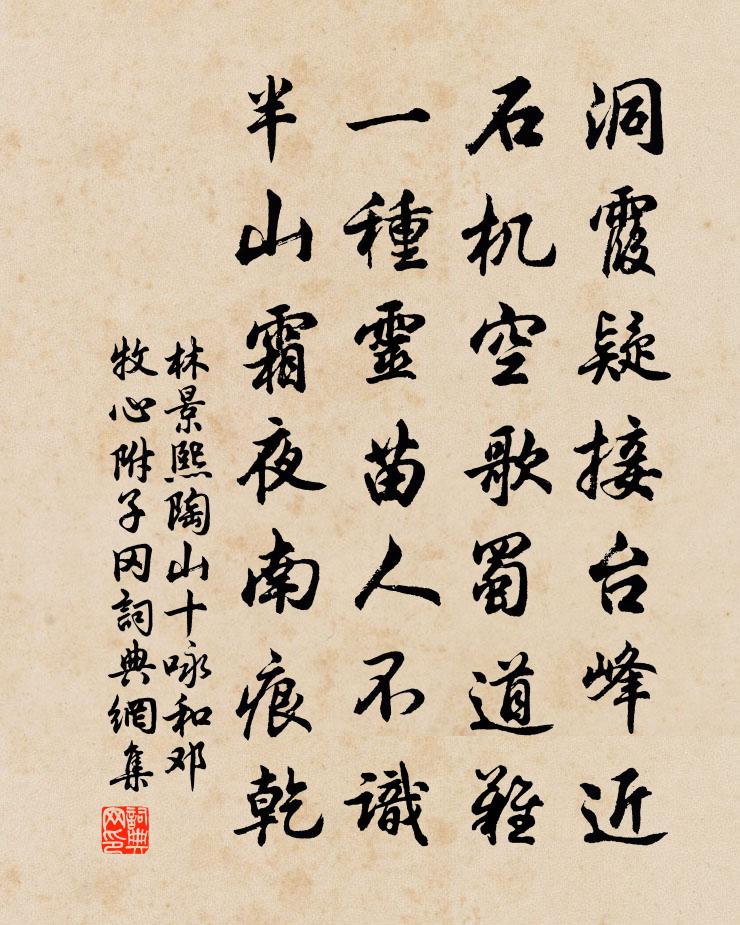 洞霞疑接台峰近
石机空歌蜀道難
一種靈苗人不識
半山霜夜南痕乾
林景熙陶山十咏和邓
牧心附子冈詞典網集
詞典
网印